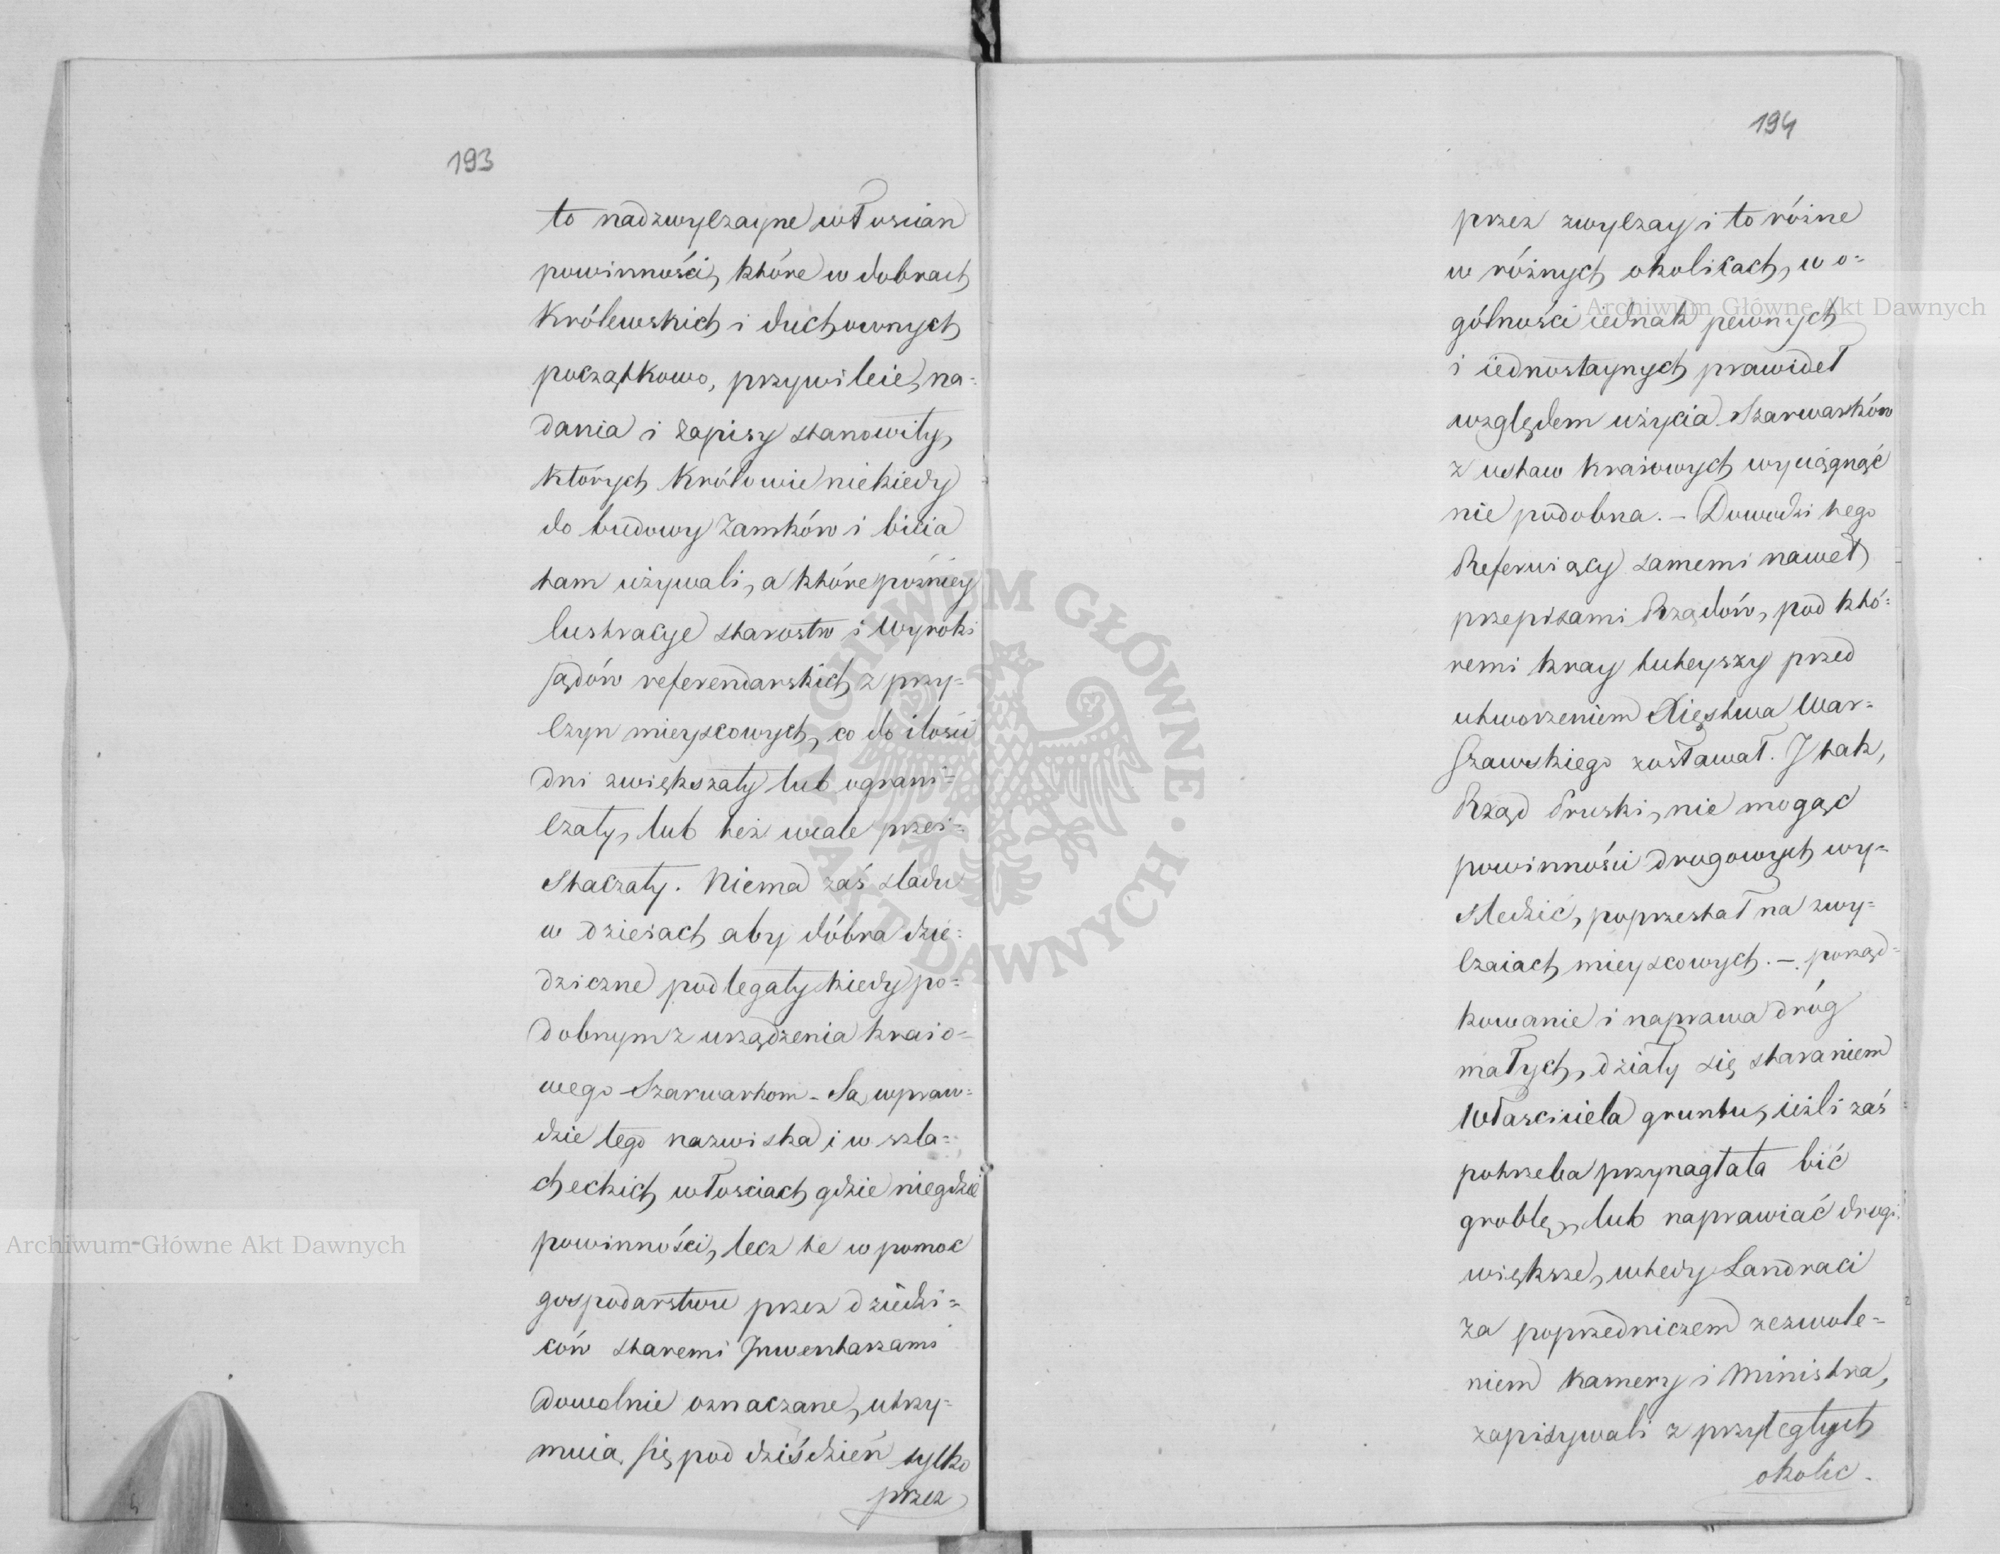 193
to nadzwyczayne włościan
powinności, które w dobrach
Królewskich i duchownych
początkowo, przywileie, na=
dania i zapisy stanowiły,
których Królowie niekiedy
do budowy Zamków i bicia
tam używali, a które późniey
lustracye starostw i Wyroki
sądów referendarskich z przy=
czyn mieyscowych, co do ilości
dni zwiększały lub ograni=
czały, lub też wcale przei=
staczały. Niema zaś sladu
w dzieiach aby dóbra dzie=
dziczne podlegały kiedy po=
dobnym z urządzenia kraio=
wego Szarwarkom - Są wpraw=
dzie tego nazwiska i w szla=
checkich włosciach gdzie niegdzie
powinności, lecz te w pomoc
gospodarstwu przez dziedzi=
ców staremi Inwentarzami
dowolnie oznaczane, utrzy=
muią się pod dziś dzień tylko
przez
194
przez zwyczay i to różne
w różnych okolicach, w o=
gólności iednak pewnych
i iednostaynych prawideł
względem użycia Szarwarków
z ustaw kraiowych wyciągnąć
nie podobna. - Dowodzi tego
Referuiący samemi nawet
przepisami Rządów, pod któ=
remi kray tuteyszy przed
utworzeniem Xięstwa War=
szawskiego zostawał. I tak,
Rząd Pruski, nie mogąc
powinności drogowych wy=
sledzić, poprzestał na zwy=
czaiach mieyscowych. - porząd=
kowanie i naprawa dróg
małych, działy się staraniem
Właściciela gruntu, ieżli zaś
potrzeba przynagłała bić
groblę, lub naprawiać drogi
większe, wtedy Landraci
za poprzedniczem zezwole=
niem Kamery i Ministra,
zapisywali z przyległych
okolic.
Archiwum Główne Akt Dawnych
Archiwum Główne Akt Dawnych
ARCHIWUM GŁÓWNE · AKT DAWNYCH ·